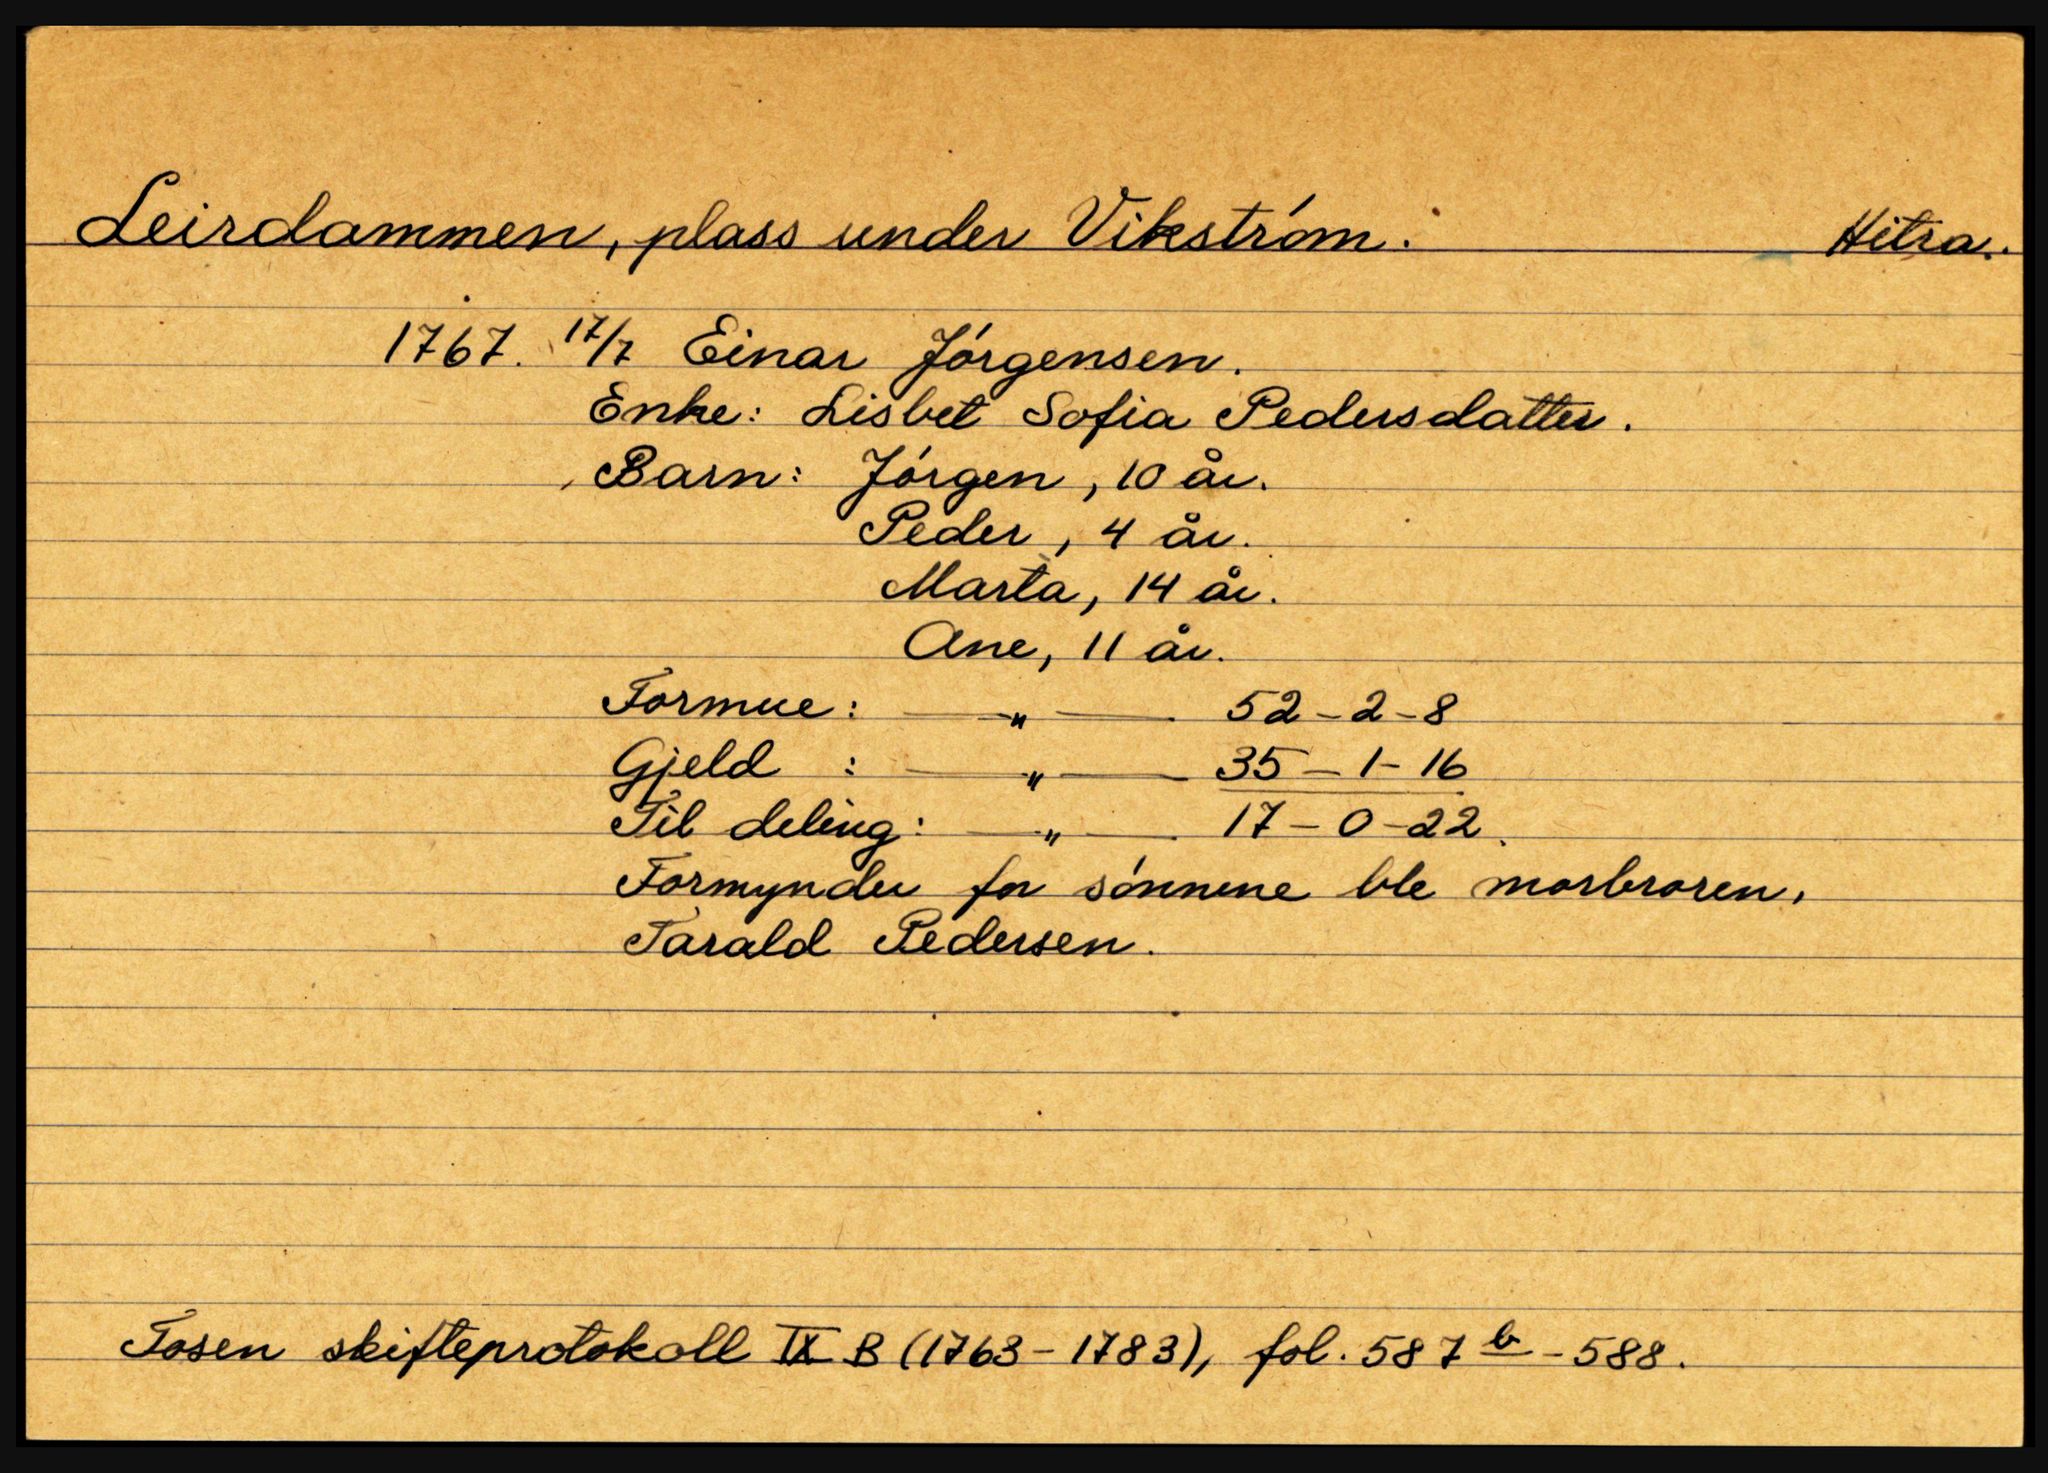 Leirdammen, plass under Vikström. Hitra.
1767. 17/7 Einar Jörgensen.
Enke: Lisbet Sofia Pedersdatter.
Barn: Jörgen, 10 år.
Peder, 4 år.
Marta, 14 år.
Ane, 11 år.
Formue: — „ — 52 - 2 - 8
Gjeld : — „ — 35 - 1 - 16
Til deling: — „ — 17 - 0 - 22.
Formynder for sönnene ble morbroren,
Tarald Pedersen.
Fosen skifteprotokoll IX B (1763 - 1783), fol. 587 b - 588.